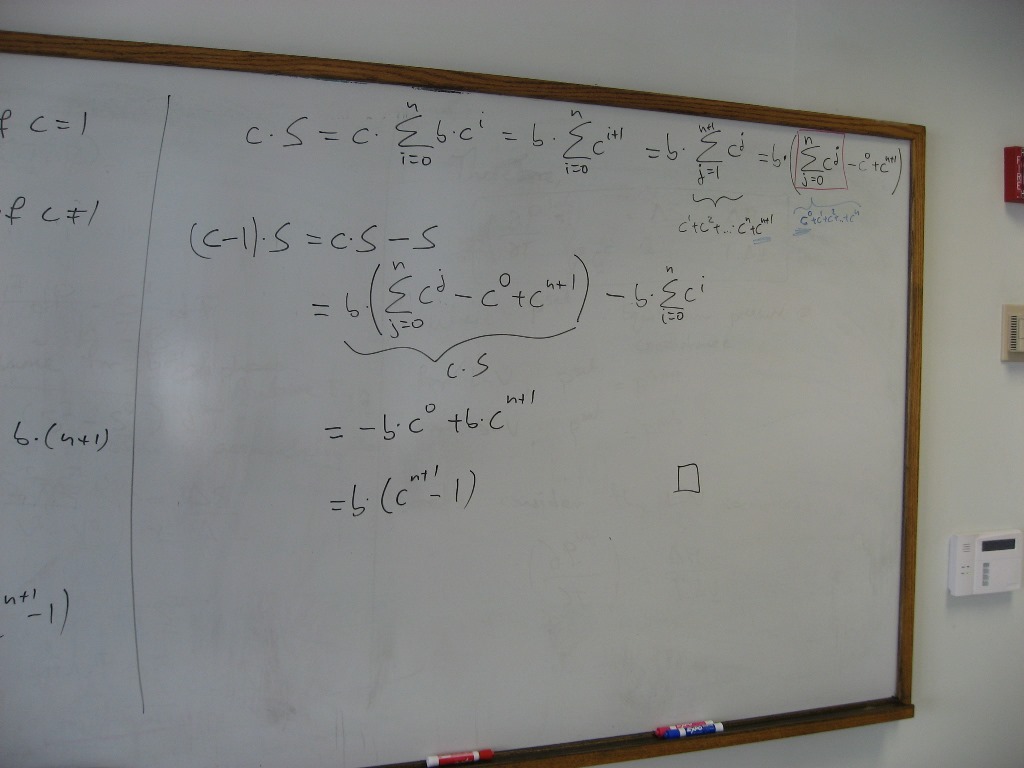 f c = 1
f c ≠ 1
b·(n+1)
n+1 -1)
c·S = c· ∑_{i=0}^{n} b·c^i = b· ∑_{i=0}^{n} c^{i+1} = b· ∑_{j=1}^{n+1} c^j = b·(∑_{j=0}^{n} c^j - c^0 + c^{n+1})
c^1+c^2+...c^n+c^{n+1} c^0+c^1+c^2+...+c^n
(c-1)·S = c·S - S
= b·(∑_{j=0}^{n} c^j - c^0 + c^{n+1}) - b·∑_{i=0}^{n} c^i
c·S
= -b·c^0 + b·c^{n+1}
= b·(c^{n+1} - 1) □